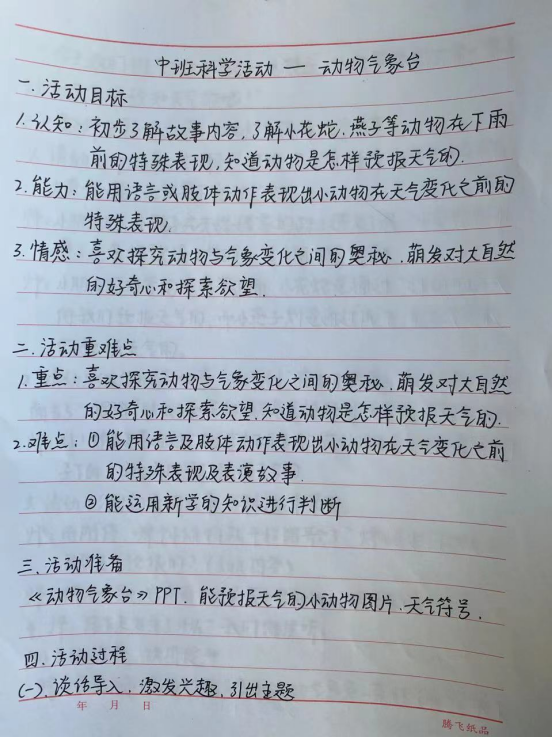 中班科学活动 — 动物气象台
一.活动目标
1.认知：初步了解故事内容,了解小花蛇、燕子等动物在下雨
前的特殊表现,知道动物是怎样预报天气的.
2.能力：能用语言或肢体动作表现出小动物在天气变化之前的
特殊表现.
3.情感：喜欢探究动物与气象变化之间的奥秘、萌发对大自然
的好奇心和探索欲望.
二.活动重难点
1.重点：喜欢探究动物与气象变化之间的奥秘、萌发对大自然
的好奇心和探索欲望.知道动物是怎样预报天气的.
2.难点：①能用语言及肢体动作表现出小动物在天气变化之前
的特殊表现及表演故事.
②能运用新学的知识进行判断
三.活动准备
《动物气象台》PPT、能预报天气的小动物图片、天气符号.
四.活动过程
(一).谈话导入,激发兴趣,引出主题
年 月 日
腾飞纸品